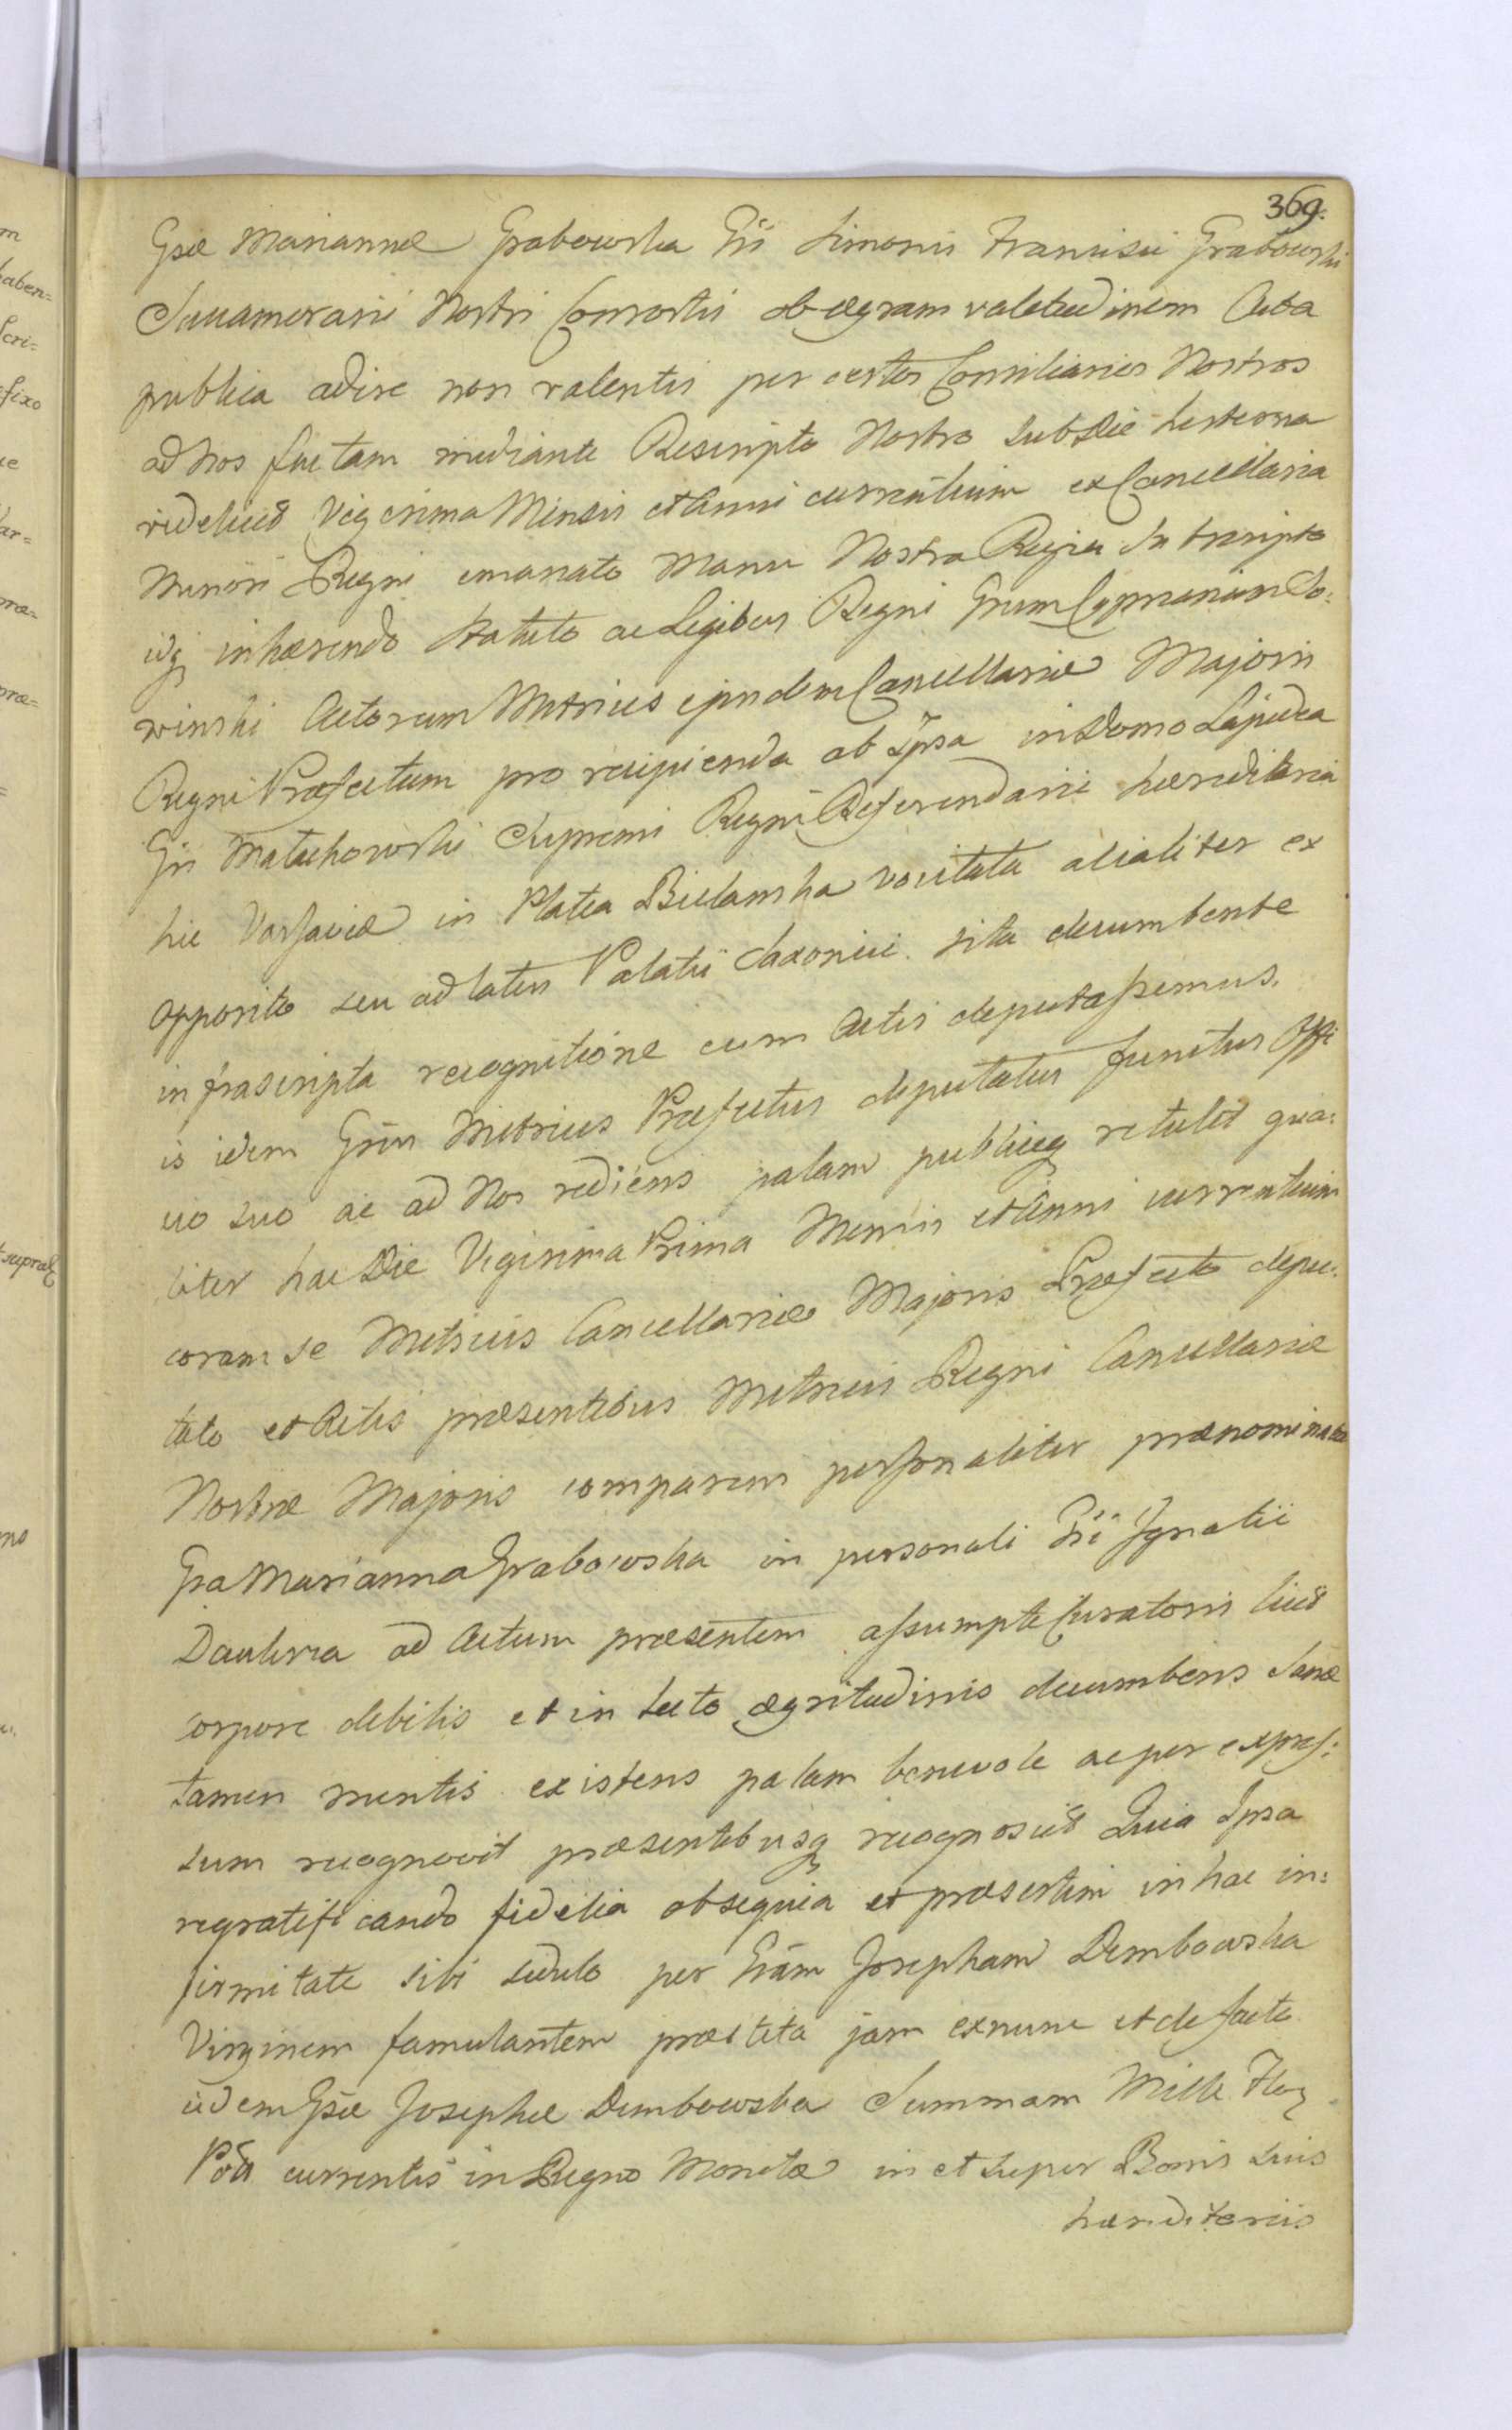 369.
Gsæ Mariannæ Grabowska Gsi Simonis Francisci Grabowski
Suæamerarii Nostri Consortis ob ægram valetudinem Acta
publica adire non valentis per certos Consiliarios Nostros
ad Nos factam mediante Rescripto Nostro sub Die hesterna
videlicet Vigesima Mensis et Anni currentium ex Cancellaria
Minori Regni emanato Manu Nostra Regia subscripto
idq inhærendo Statuto ac Legibus Regni Grum Cyprianum So=
winski Actorum Metrices ejusdem Cancellariæ Majoris
Regni Præfectum pro recipienda ab Ipsa in Domo Lapidea
Gsi Małachowski Supremi Regni Referendarii hæreditaria
hic Varsaviæ in Platea Bielanska vocitata alialiter ex
opposito seu ad latus Palatii Saxonici sita decumbente
infrascripta recognitione cum Actis deputassemus.
is idem Gsus Metrices Præfectus deputatus functus Offi
cio suo ac ad Nos rediens palam publiceq retulit qua=
liter hac Die Vigesima Prima Mensis et Anni currentium
coram se Metrices Cancellariæ Majoris Præfecto depu=
tato et Actis præsentibus Metrices Regni Cancellariæ
Nostræ Majoris comparens personaliter prænominata
Gsa Marianna Grabowska in personali Gsi Ignatii
ad Actum præsentem assumpti Curatoris licet
corpore debilis et in lecto ægritudinis decumbens Sanæ
tamen mentis existens palam benevole ac per expres=
sum recognovit præsentibusq recognoscit Quia Ipsa
regratificando fidelia obsequia et præsertim in hac in=
firmitate sibi sedulo per Gsam Josepham Dembowska
Virginem famulantem præstita jam exnunc et de facto
eidem Gsæ Josephæ Dembowska Summam Mille Flor
Poll currentis in Regno Monetæ in et super Bonis suis
hæreditariis